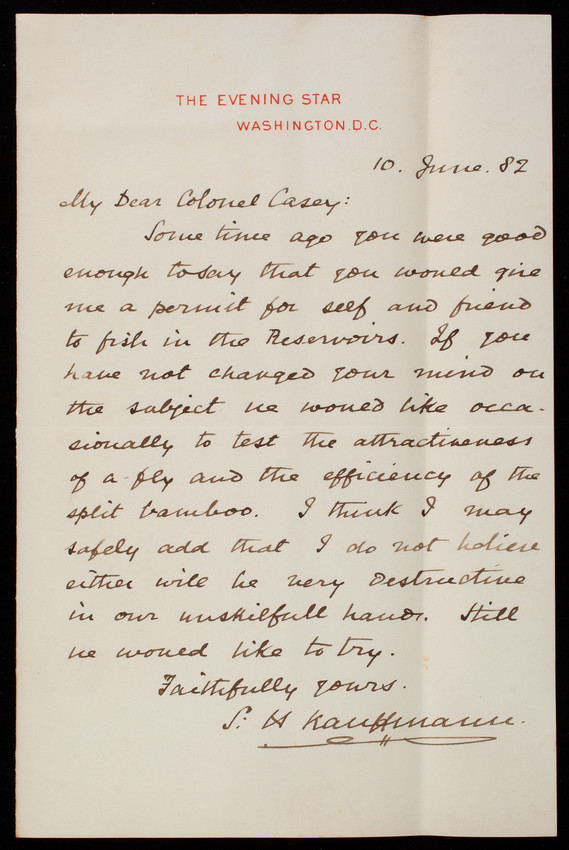 THE EVENING STAR
WASHINGTON. D.C.
10. June. 82
My Dear Colonel Casey:
Some time ago you were good
enough to say that you would give
me a permit for self and friend
to fish in the Reservoirs. If you
have not changed your mind on
the subject we would like occa-
sionally to test the attractiveness
of a fly and the efficiency of the
split bamboo. I think I may
safely add that I do not believe
either will be very destructive
in our unskilfull hands. Still
we would like to try.
Faithfully yours.
S. H Kauffmann.